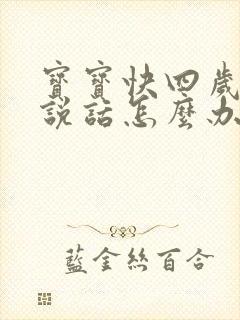 寶寶快四歲
説話怎麼办
藍金絲百合